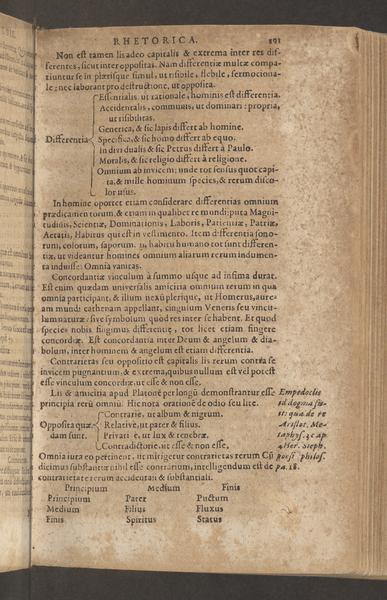 RHETORICA. 101
Non est tamen lis adeo capitalis & extrema inter res dif-
ferentes, sicut inter oppositas. Nam differentiæ multæ compa-
tiuntur se in plærisque simul, ut risibile, flebile, sermociona-
le; nec laborant pro destructione, ut opposita.
Essentialis ut rationale, hominis est differentia.
Accidentalis, communis, ut dominari: propria,
ut risibilitas.
Generica, & sic lapis differt ab homine.
Differentia Specifica, & sic homo differt ab equo.
Individualis & sic Petrus differt à Paulo.
Moralis, & sic religio differt à religione.
Omnium ab invicem: unde tot sensus quot capi-
ta, & mille hominum species, & rerum disco-
lor usus.
In homine oportet etiam considerare differentias omnium
prædicamentorum, & etiam in qualibet re mundi: puta Magni-
tudinis, Scientiæ, Dominationis, Laboris, Patientiæ, Patriæ,
Aetatis, Habitus qui est in vestimento. Item differentiæ sono-
rum, colorum, saporum. habitu humano tot sunt differen-
tiæ, ut videantur homines omnium aliarum rerum indumen-
ta induisse: Omnia vanitas.
Concordantiæ vinculum à summo usque ad infima durat.
Est enim quædam universalis amicitia omnium rerum in qua
omnia participant, & illum nexū plerique, ut Homerus, aure-
am mundi cathenam appellant, cingulum Veneris seu vincu-
lum naturæ, sive symbolum quod res inter se habent. Et quod
species nobis fingimus differentiæ, tot licet etiam fingere
concordiæ. Est concordantia inter Deum & angelum & dia-
bolum, inter hominem & angelum est etiam differentia.
Contrarietas seu oppositio est capitalis lis rerum contra se
invicem pugnantium, & extrema, quibus nullum est vel potest
esse vinculum concordiæ, ut esse & non esse.
Lis & amicitia apud Platonē per longū demonstrantur esse
principia rerū omniū. Hic nota orationē de odio seu lite.
Contrarie, ut album & nigrum.
Opposita quædam sunt. Relative, ut pater & filius.
Privativè, ut lux & tenebræ.
Contradictorie, ut esse & non esse.
Omnia iura eo pertinent, ut mitigetur contrarietas rerum Cū
dicimus substantiæ nihil esse contrarium, intelligendum est de
contrarietate rerum accidentali & substantiali.
Empedoclis
id dogma fu-
it: qua de re
Aristot. Me-
taphys.
Hen. Steph.
poesi philos.
pa. 18.
Principium Medium Finis
Principium Pater Punctum
Medium Filius Fluxus
Finis Spiritus Status